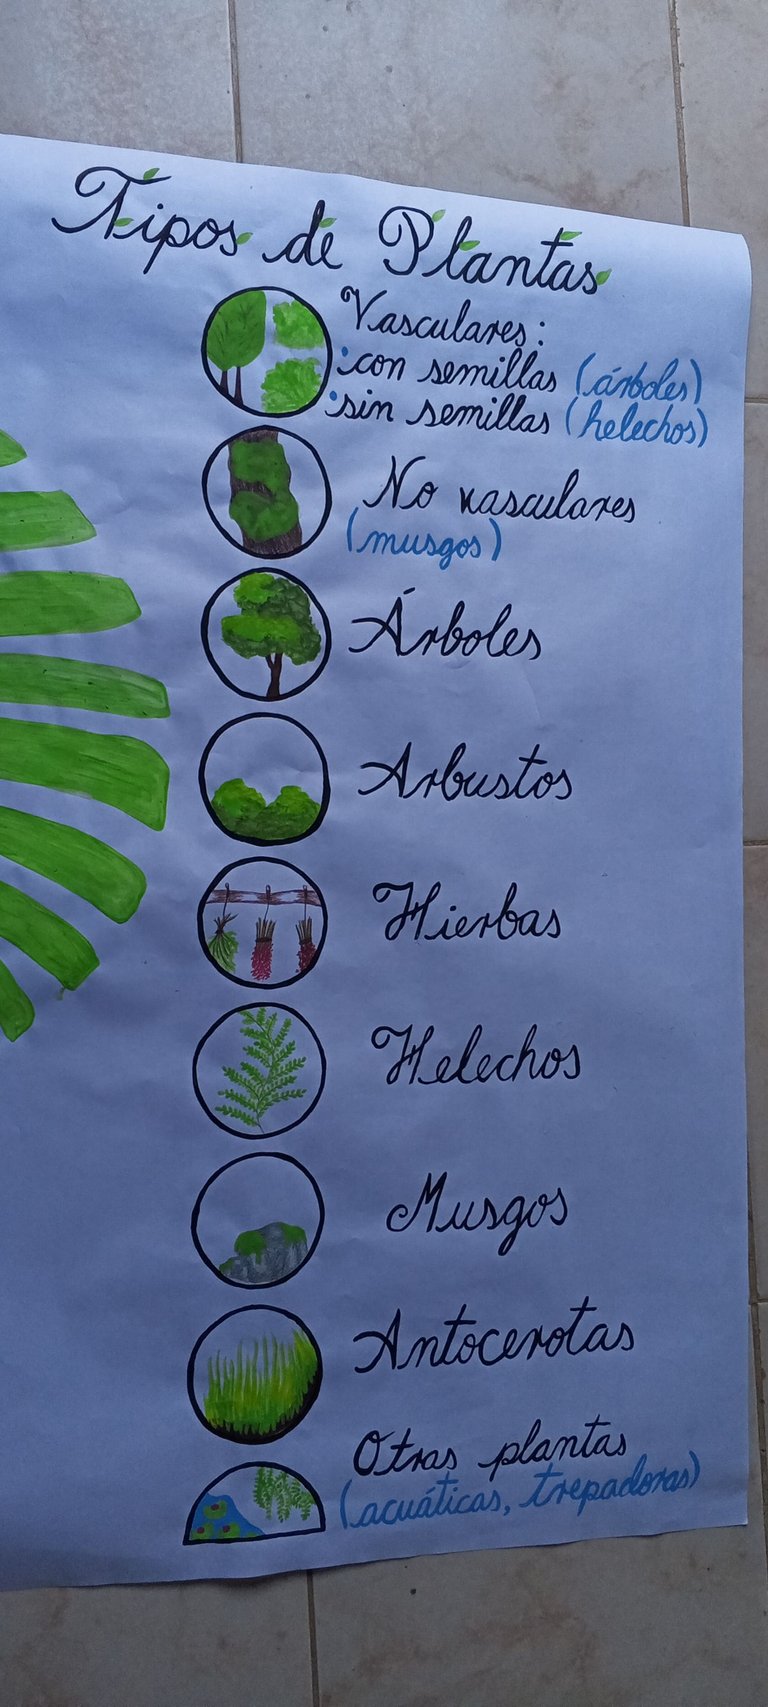 Tipos de Plantas
Vasculares:
• con semillas (árboles)
• sin semillas (helechos)
No vasculares
(musgos)
Árboles
Arbustos
Hierbas
Helechos
Musgos
Antocerotas
Otras plantas
(acuáticas, trepadoras)